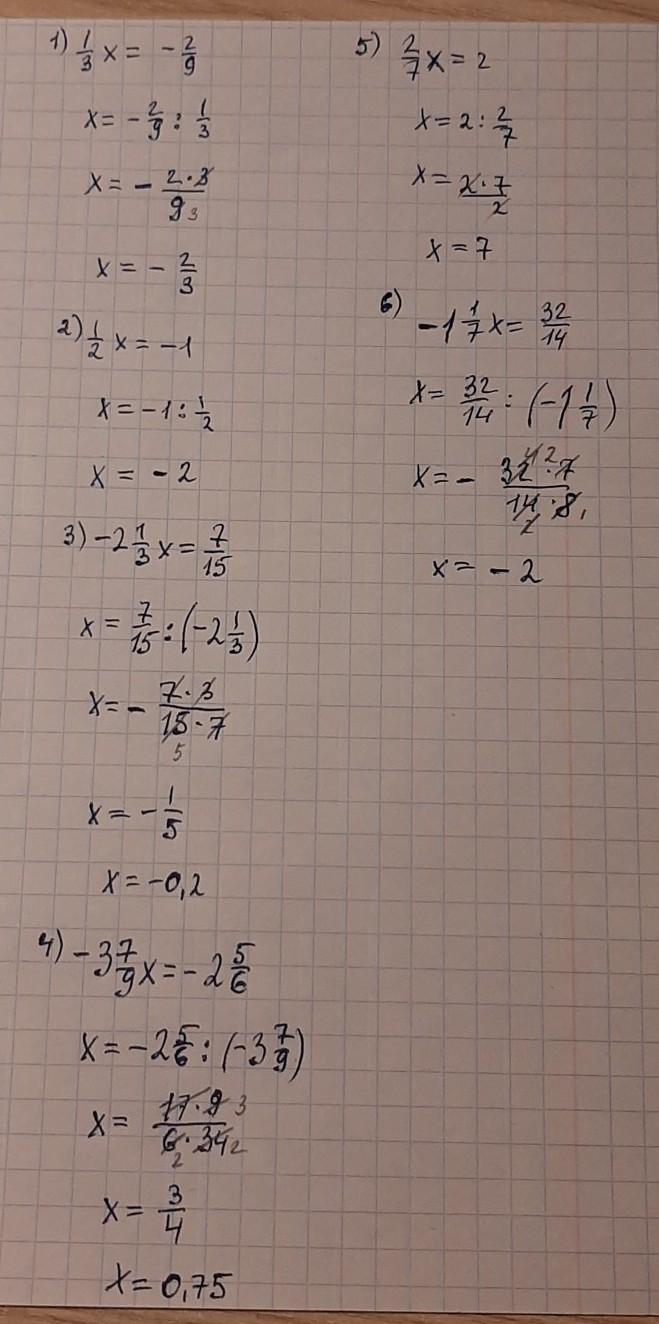 1) 1/3 x = - 2/9
x = - 2/9 : 1/3
x = - 2·3/9 3
x = - 2/3
2) 1/2 x = -1
x = -1 : 1/2
x = -2
3) -2 1/3 x = 7/15
x = 7/15 : (-2 1/3)
x = - 7·3/15·7
5
x = - 1/5
x = -0,2
4) -3 7/9 x = -2 5/6
x = -2 5/6 : (-3 7/9)
x = 17·9 3/6·34 2
2
x = 3/4
x = 0,75
5) 2/7 x = 2
x = 2 : 2/7
x = 2·7/2
x = 7
6) -1 1/7 x = 32/14
x = 32/14 : (-1 1/7)
x = - 32·7/14·8
x = -2